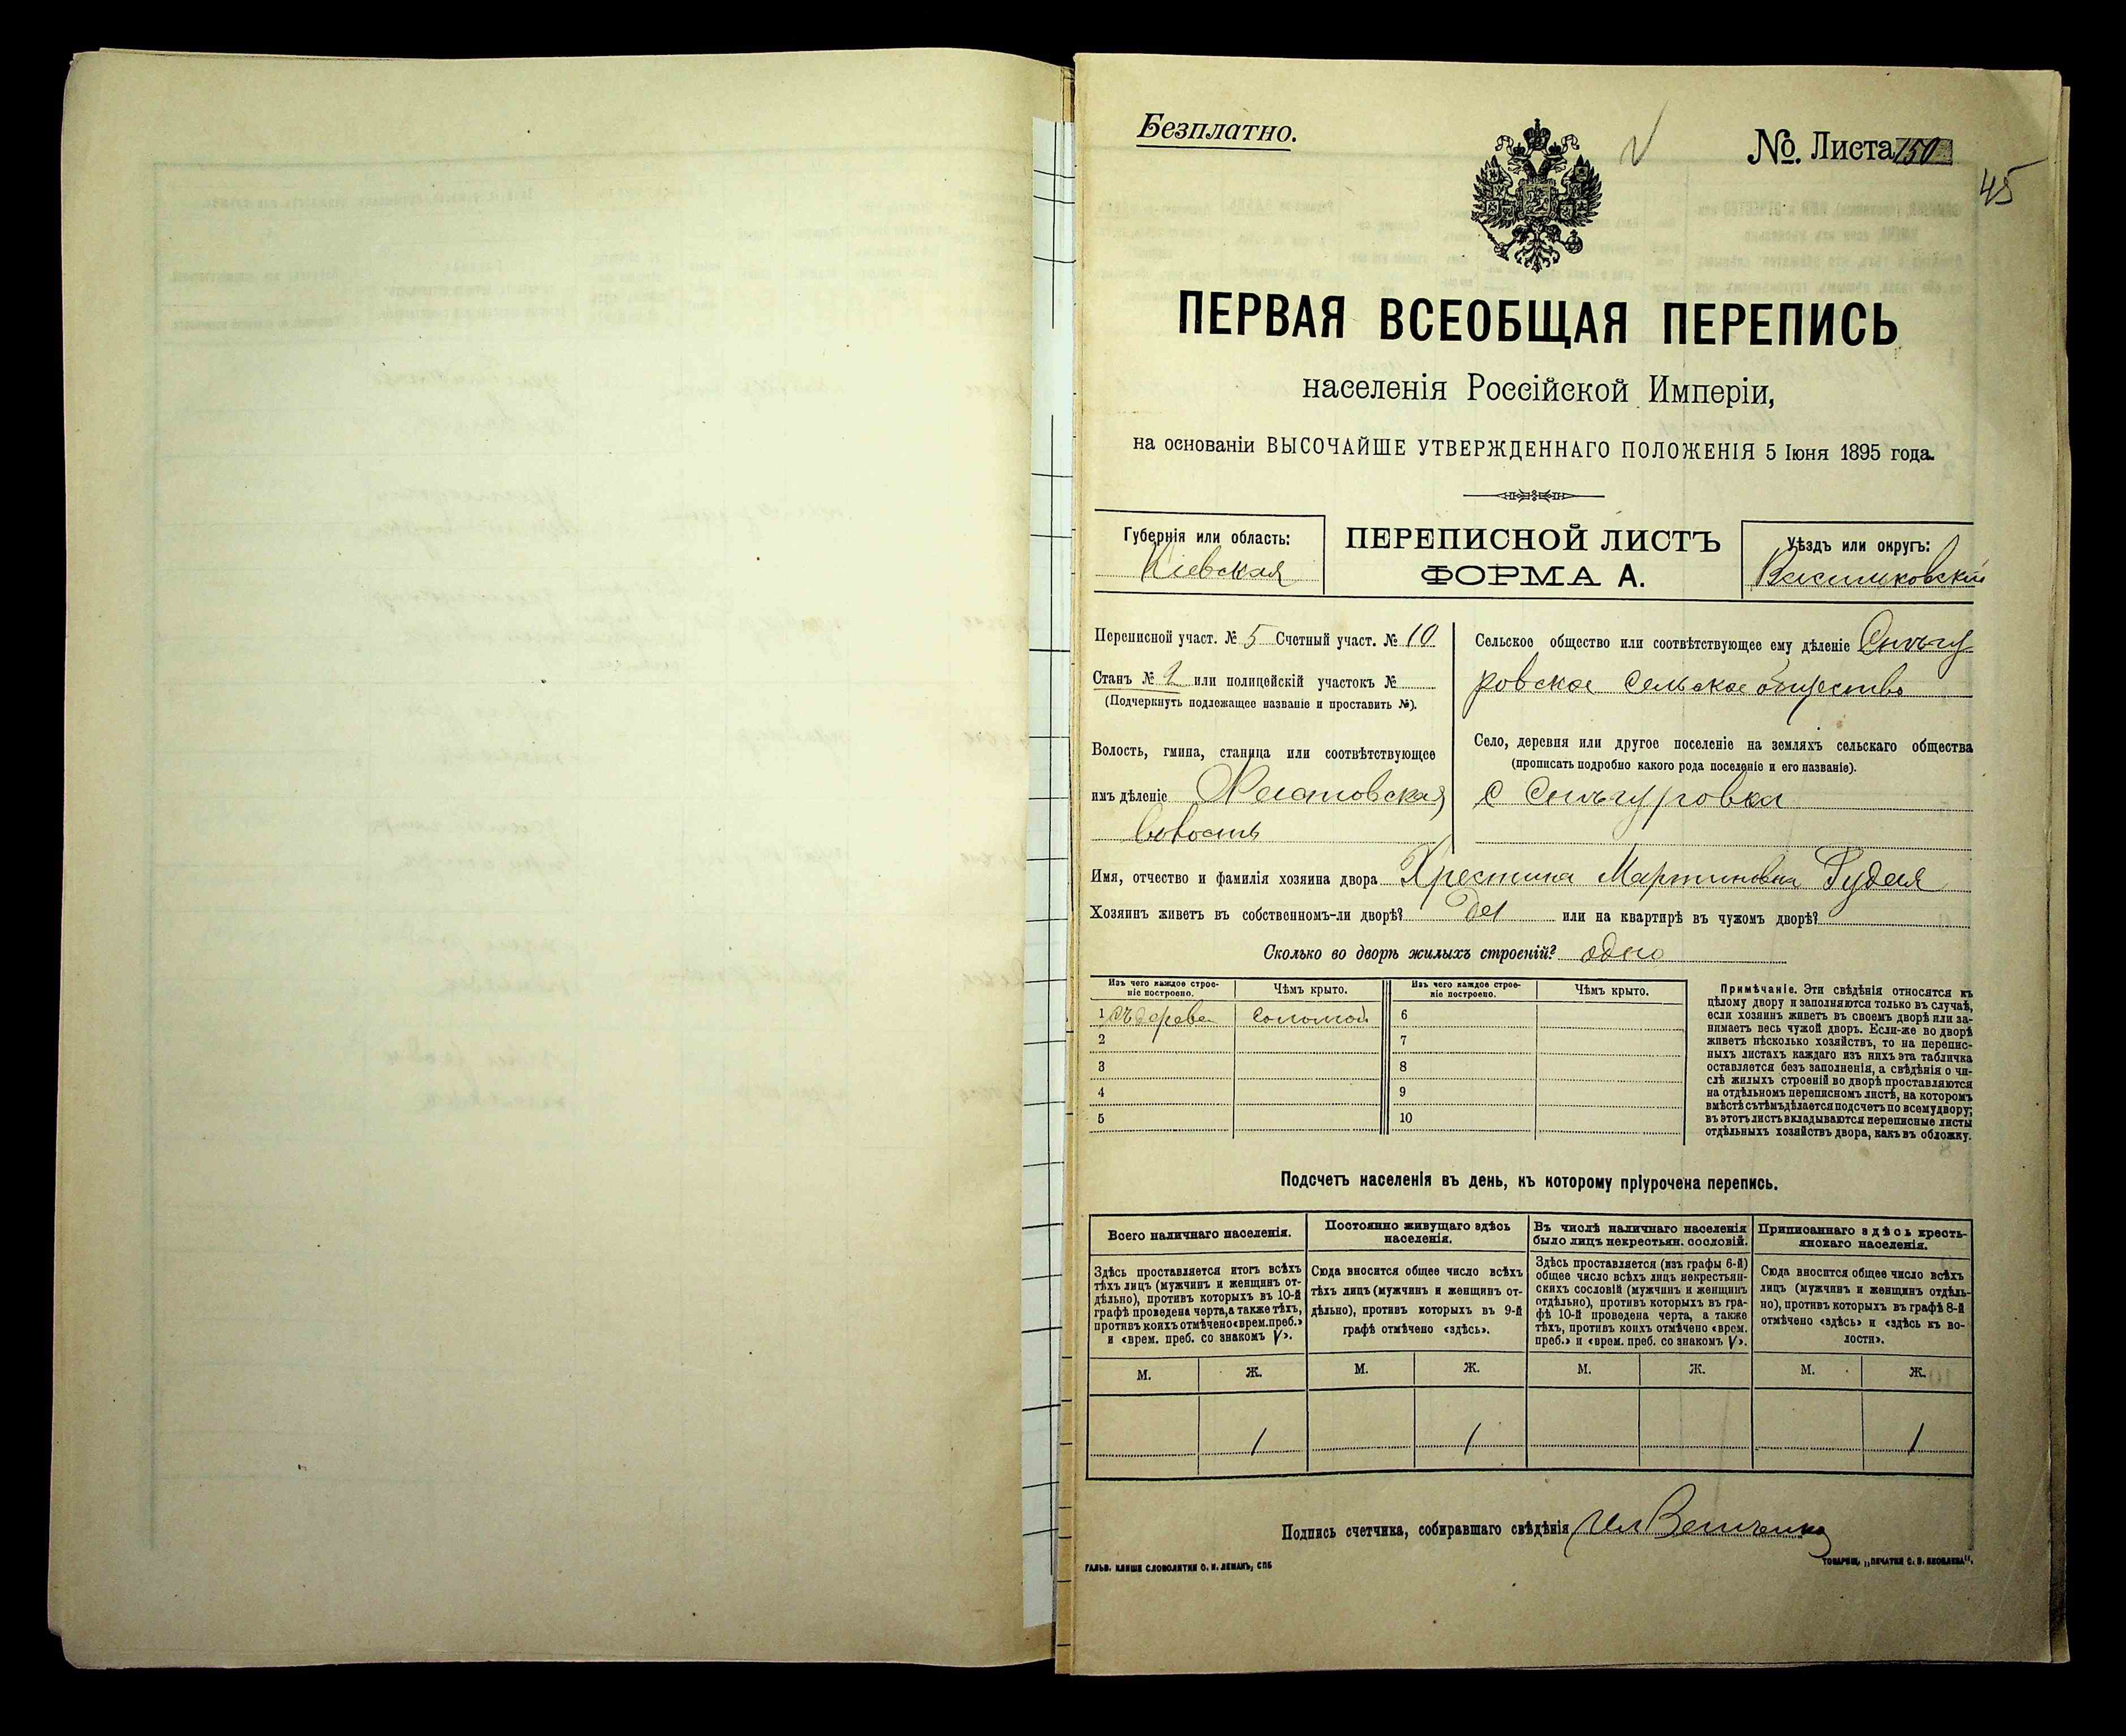 Безплатно.
№. Листа 150
45
ПЕРВАЯ ВСЕОБЩАЯ ПЕРЕПИСЬ
населенія Россійской Имперіи,
на основаніи ВЫСОЧАЙШЕ УТВЕРЖДЕННАГО ПОЛОЖЕНІЯ 5 Іюня 1895 года.
Губернія или область:
Кіевская
ПЕРЕПИСНОЙ ЛИСТЪ
ФОРМА А.
Уѣздъ или округъ:
Васильковскій
Переписной участ. № 5 Счетный участ. № 10
Станъ № 2 или полицейскій участокъ №
(Подчеркнуть подлежащее названіе и проставить №).
Волость, гмина, станица или соотвѣтствующее
имъ дѣленіе
волость
Сельское общество или соотвѣтствующее ему дѣленіе Снѣгу
ровское сельское общество
Село, деревня или другое поселеніе на земляхъ сельскаго общества
(прописать подробно какого рода поселеніе и его названіе).
с Снѣгуровка
Имя, отчество и фамилія хозяина двора Хрестина Мартиновна Рудая
Хозяинъ живетъ въ собственномъ-ли дворѣ? да или на квартирѣ въ чужомъ дворѣ?
Сколько во дворѣ жилыхъ строеній? одно
Изъ чего каждое строе-
ніе построено.
Чѣмъ крыто.
Изъ чего каждое строе-
ніе построено.
Чѣмъ крыто.
1 съ дерева соломой
2
3
4
5
6
7
8
9
10
Примѣчаніе. Эти свѣдѣнія относятся къ
цѣлому двору и заполняются только въ случаѣ,
если хозяинъ живетъ въ своемъ дворѣ или за-
нимаетъ весь чужой дворъ. Если-же во дворѣ
живетъ нѣсколько хозяйствъ, то на перепис-
ныхъ листахъ каждаго изъ нихъ эта табличка
оставляется безъ заполненія, а свѣдѣнія о чи-
слѣ жилыхъ строеній во дворѣ проставляются
на отдѣльномъ переписномъ листѣ, на которомъ
вмѣстѣ съ тѣмъ дѣлается подсчетъ по всему двору;
въ этотъ листъ вкладываются переписные листы
отдѣльныхъ хозяйствъ двора, какъ въ обложку.
Подсчетъ населенія въ день, къ которому пріурочена перепись.
Всего наличнаго населенія.
Здѣсь проставляется итогъ всѣхъ
тѣхъ лицъ (мужчинъ и женщинъ от-
дѣльно), противъ которыхъ въ 10-й
графѣ проведена черта, а также тѣхъ,
противъ коихъ отмѣчено «врем. преб.»
и «врем. преб. со знакомъ V».
М. Ж.
1
Постоянно живущаго здѣсь
населенія.
Сюда вносится общее число всѣхъ
тѣхъ лицъ (мужчинъ и женщинъ от-
дѣльно), противъ которыхъ въ 9-й
графѣ отмѣчено «здѣсь».
М. Ж.
1
Въ числѣ наличнаго населенія
было лицъ некрестьян. сословій.
Здѣсь проставляется (изъ графы 6-й)
общее число всѣхъ лицъ некрестьян-
скихъ сословій (мужчинъ и женщинъ
отдѣльно), противъ которыхъ въ гра-
фѣ 10-й проведена черта, а также
тѣхъ, противъ коихъ отмѣчено «врем.
преб.» и «врем. преб. со знакомъ V».
М. Ж.
Приписаннаго здѣсь кресть-
янскаго населенія.
Сюда вносится общее число всѣхъ
лицъ (мужчинъ и женщинъ отдѣль-
но), противъ которыхъ въ графѣ 8-й
отмѣчено «здѣсь» и «здѣсь къ во-
лости».
М. Ж.
1
Подпись счетчика, собиравшаго свѣдѣнія
ГАЛЬВ. КЛИШЕ СЛОВОЛИТНИ О. И. ЛЕМАНЪ, СПБ
ТОВАРИЩ. „ПЕЧАТНИ С. П. ЯКОВЛЕВА".